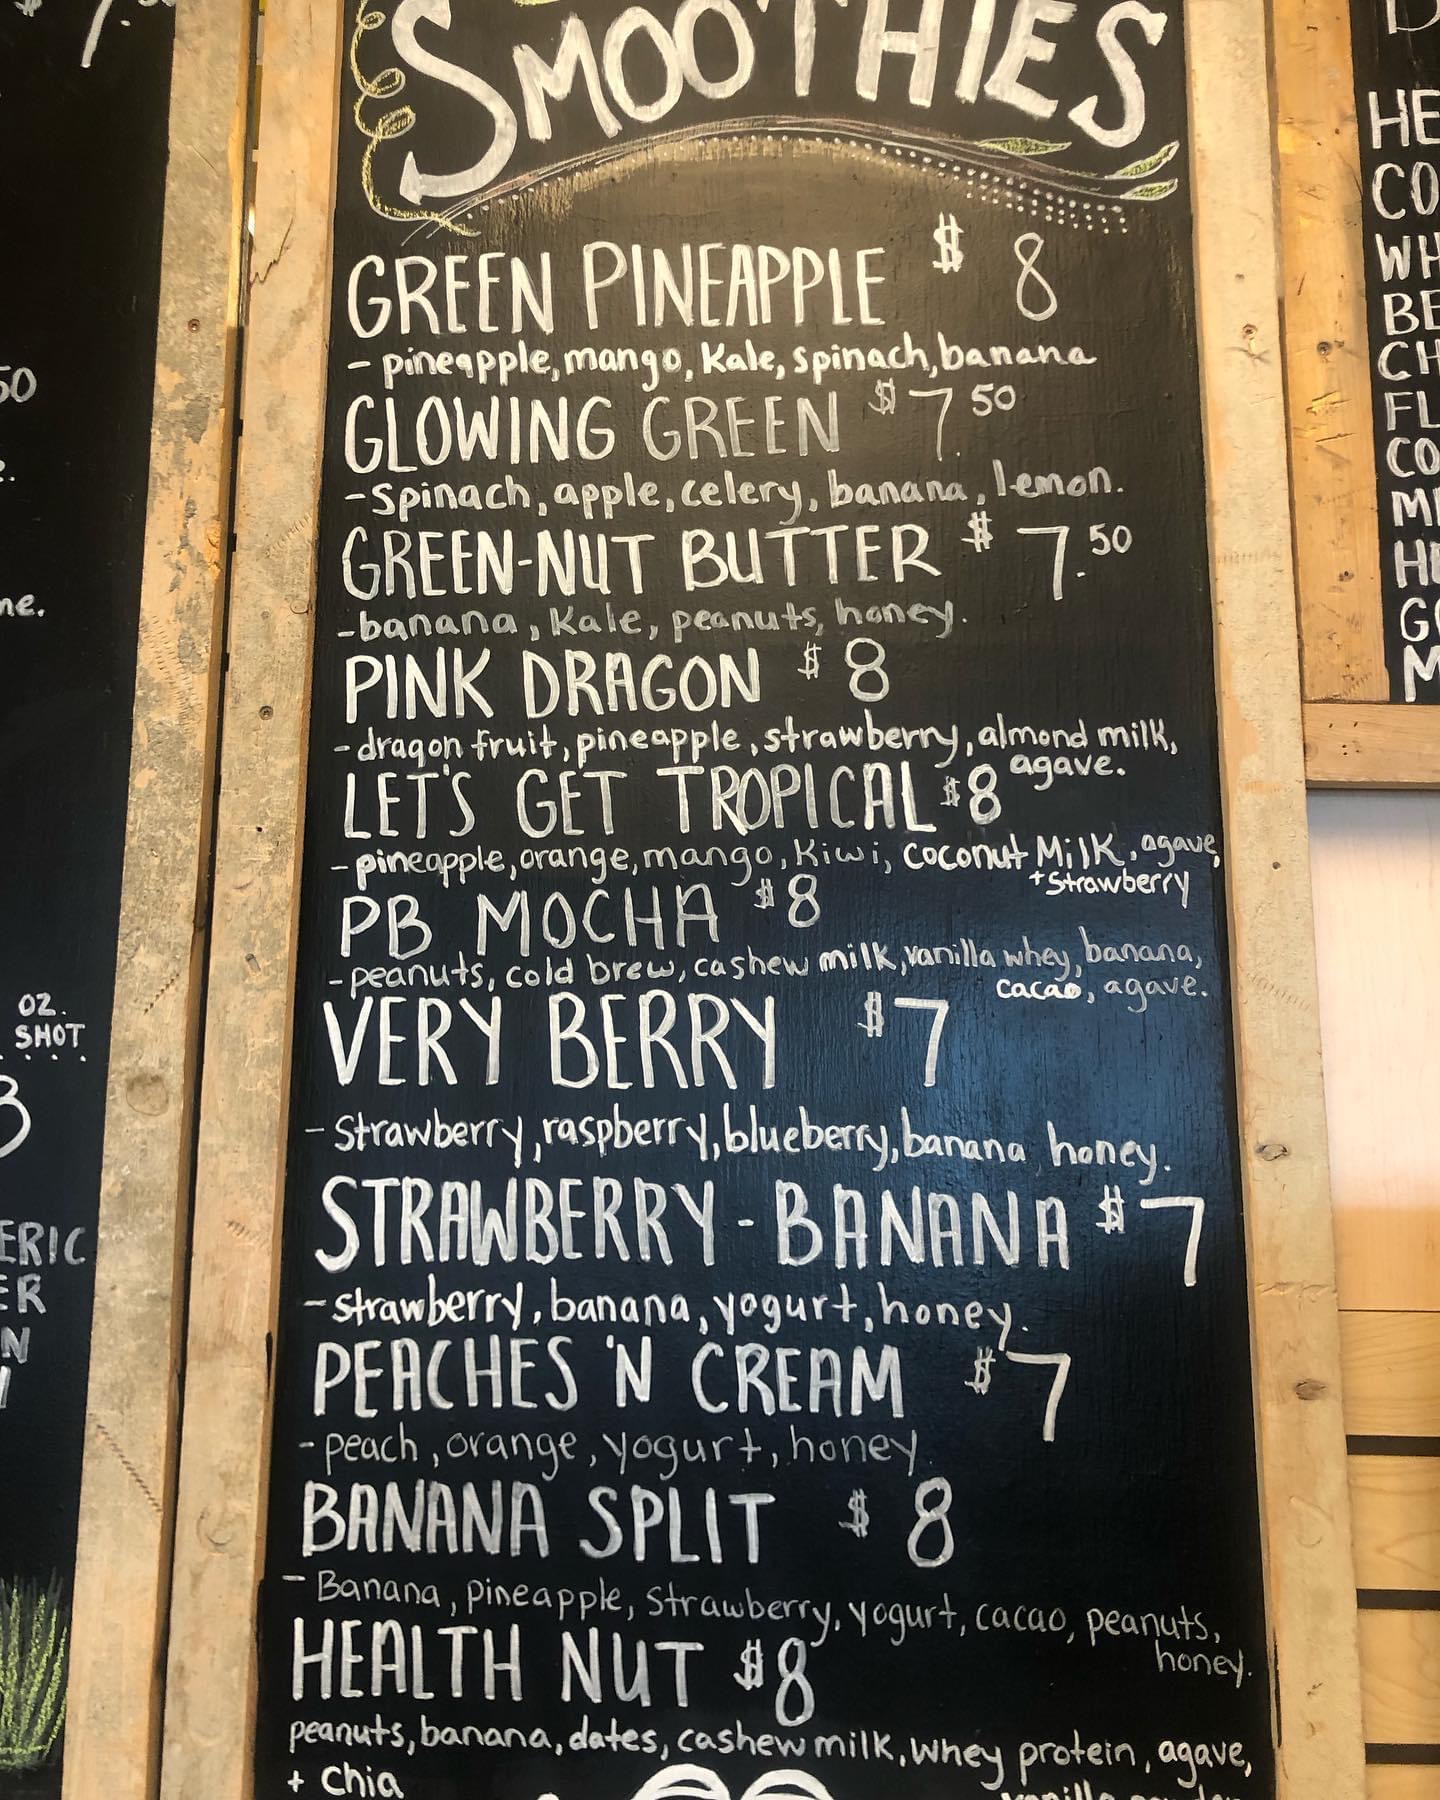 SMOOTHIES
GREEN PINEAPPLE $ 8
- pineapple, mango, Kale, spinach, banana
GLOWING GREEN $ 7.50
- Spinach, apple, celery, banana, lemon.
GREEN-NUT BUTTER $ 7.50
- banana, Kale, peanuts, honey.
PINK DRAGON $ 8
- dragon fruit, pineapple, strawberry, almond milk,
agave.
LET'S GET TROPICAL $8
- pineapple, orange, mango, Kiwi, coconut Milk, agave,
+ strawberry
PB MOCHA $8
- peanuts, cold brew, cashew milk, vanilla whey, banana,
cacao, agave.
VERY BERRY $7
- Strawberry, raspberry, blueberry, banana honey.
STRAWBERRY - BANANA $7
- strawberry, banana, yogurt, honey.
PEACHES 'N CREAM $7
- peach, orange, yogurt, honey
BANANA SPLIT $ 8
- Banana, pineapple, Strawberry, yogurt, cacao, peanuts,
honey.
HEALTH NUT $8
peanuts, banana, dates, cashew milk, whey protein, agave,
+ Chia
50
OZ.
SHOT